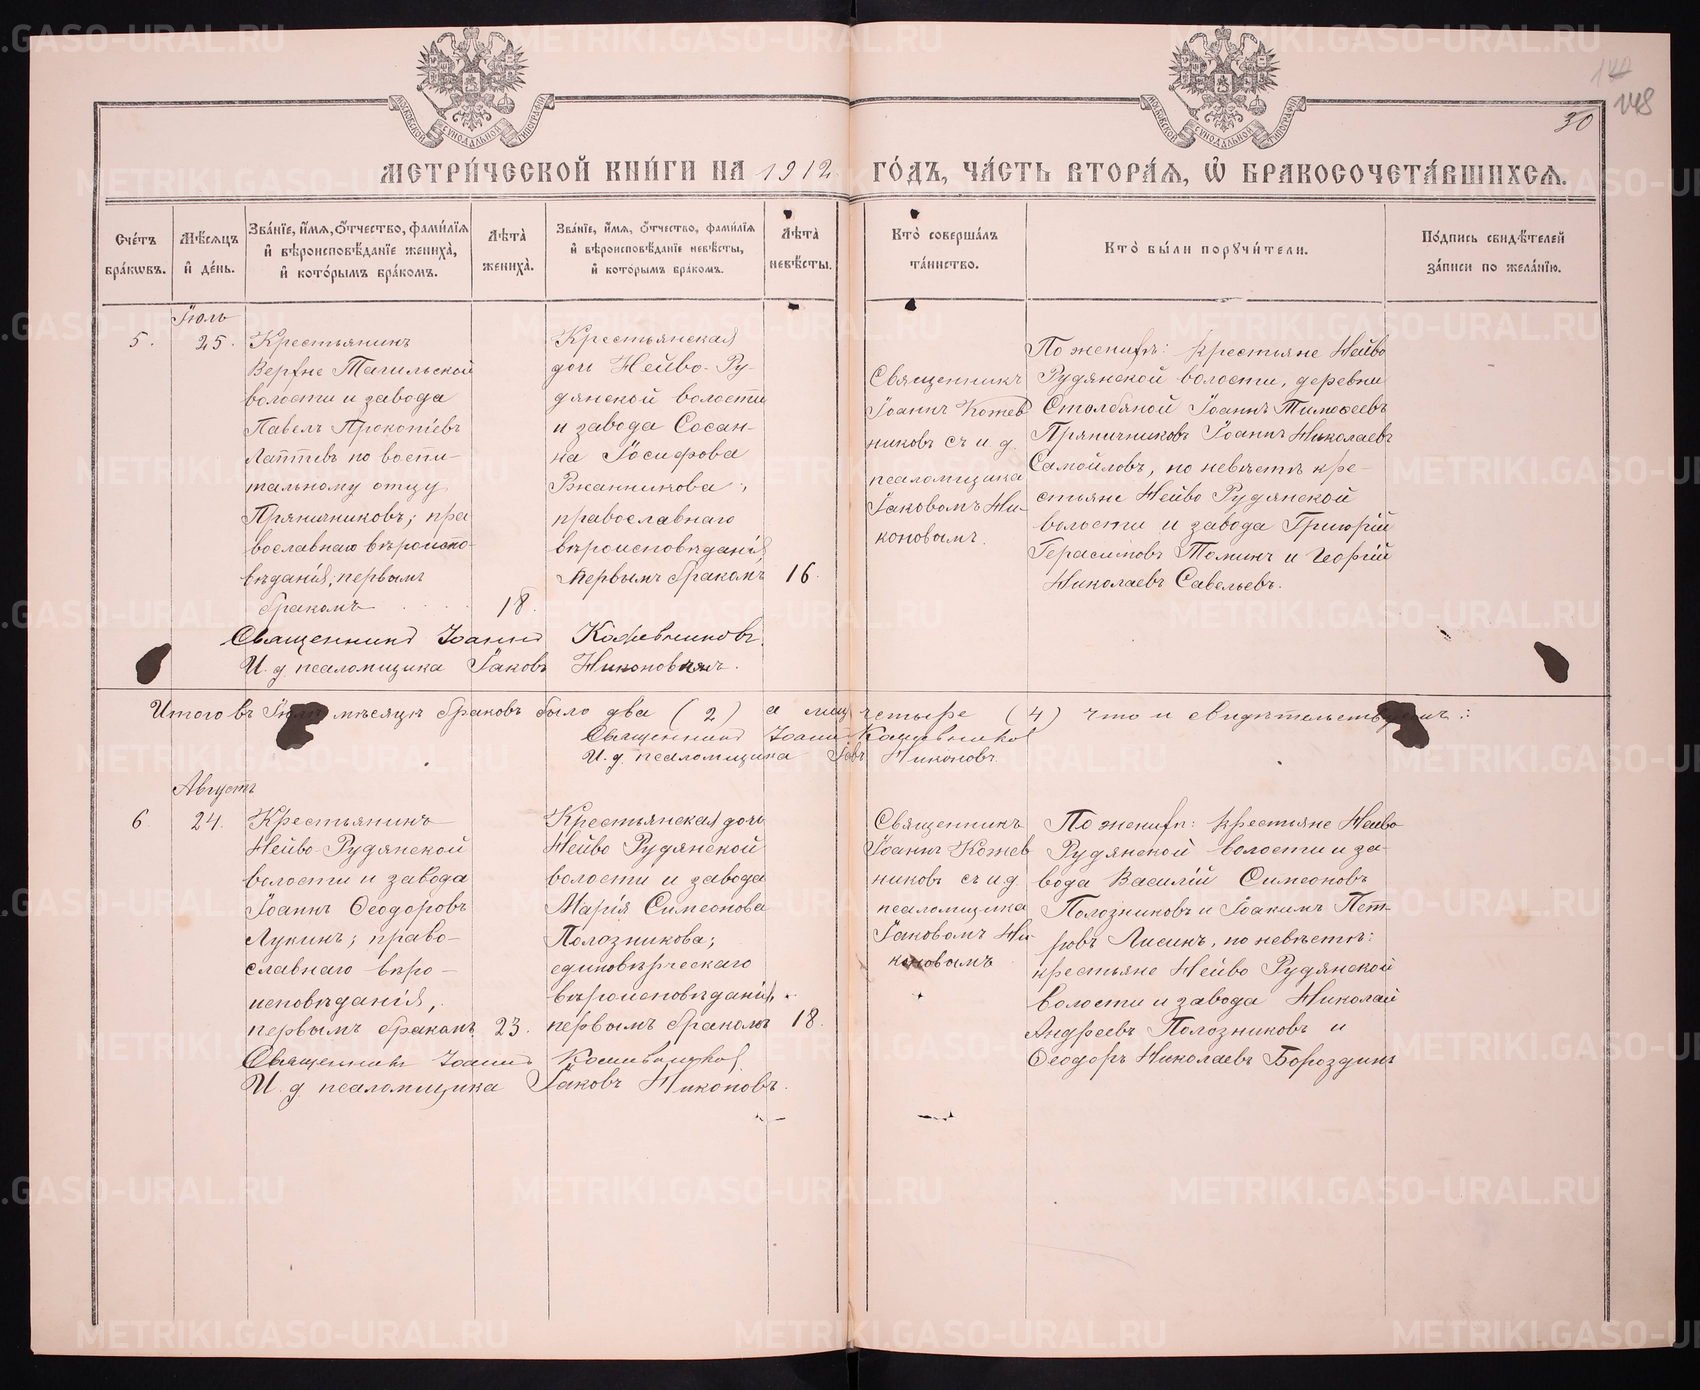 148
30
МЕТРИ́ЧЕСКОЙ КНИ́ГИ НА 1912 ГО́ДЪ, ЧА́СТЬ ВТОРА́Я, Ѽ БРАКОСОЧЕТА́ВШИХСЯ.
Сче́тъ бра́кѡвъ.
Мѣ́сяцъ и҆ де́нь.
Зва́нїе, и҆́мя, ѻ҆́тчество, фами́лїя и҆ вѣроисповѣ́данїе жениха̀, и҆ кото́рымъ бра́комъ.
Лѣ́та жениха̀.
Зва́нїе, и҆́мя, ѻ҆́тчество, фами́лїя и҆ вѣроисповѣ́данїе невѣ́сты, и҆ кото́рымъ бра́комъ.
Лѣ́та невѣ́сты.
Кто̀ соверша́лъ та́инство.
Кто̀ бы́ли порꙋчи́тели.
По́дпись свидѣ́телей за́писи по жела́нїю.
Іюль
5. 25.
Крестьянинъ
Верхне Тагильской
волости и завода
Павелъ Прокопіевъ
Лаптевъ по воспи-
тальному отцу
Пряничниковъ; пра-
вославнаго вѣроиспо-
вѣданія, первымъ
бракомъ 18.
Крестьянская
дочь Нейво-Ру-
дянской волости
и завода Сосан-
на Іосифова
Ржанникова;
православнаго
вѣроисповѣданія,
первымъ бракомъ 16.
Священникъ
Іоаннъ Кожев
никовъ съ и. д.
псаломщика
Іаковомъ Ни-
коновымъ.
По женихѣ: крестьяне Нейво
Рудянской волости, деревни
Столбяной Іоаннъ Тимоѳеевъ
Пряничниковъ Іоаннъ Николаевъ
Самойловъ, по невѣстѣ кре-
стьяне Нейво Рудянской
волости и завода Григорій
Герасимовъ Томинъ и Георгій
Николаевъ Савельевъ.
Священникъ Іоаннъ Кожевниковъ.
И. д. псаломщика Іаковъ Никоновъ.
Итого въ Іюлѣ мѣсяцѣ браковъ было два (2) а лицъ четыре (4) что и свидѣтельствуемъ:
Священникъ Іоаннъ Кожевниковъ
И. д. псаломщика Никоновъ.
Августъ
6. 24.
Крестьянинъ
Нейво-Рудянской
волости и завода
Іоаннъ Ѳеодоровъ
Лукинъ; право-
славнаго вѣро-
исповѣданія,
первымъ бракомъ 23.
Крестьянская дочь
Нейво Рудянской
волости и завода
Марія Симеонова
Полозникова;
единовѣрческаго
вѣроисповѣданія,
первымъ бракомъ 18.
Священникъ
Іоаннъ Кожев
никовъ съ и д
псаломщика
Іаковомъ Ни-
коновымъ
По женихѣ: крестьяне Нейво
Рудянской волости и за-
вода Василій Симеоновъ
Полозниковъ и Іоакимъ Пет-
ровъ Лисинъ, по невѣстѣ:
крестьяне Нейво Рудянской
волости и завода Николай
Андреевъ Полозниковъ и
Ѳеодоръ Николаевъ Бороздинъ
Священникъ Іоаннъ Кожевниковъ
И. д. псаломщика Іаковъ Никоновъ.
METRIKI.GASO-URAL.RU